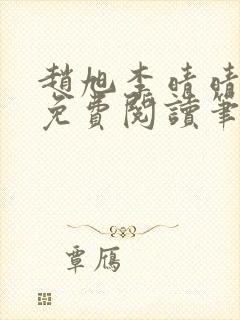 趙旭李晴晴
免費閱讀筆
覃雁